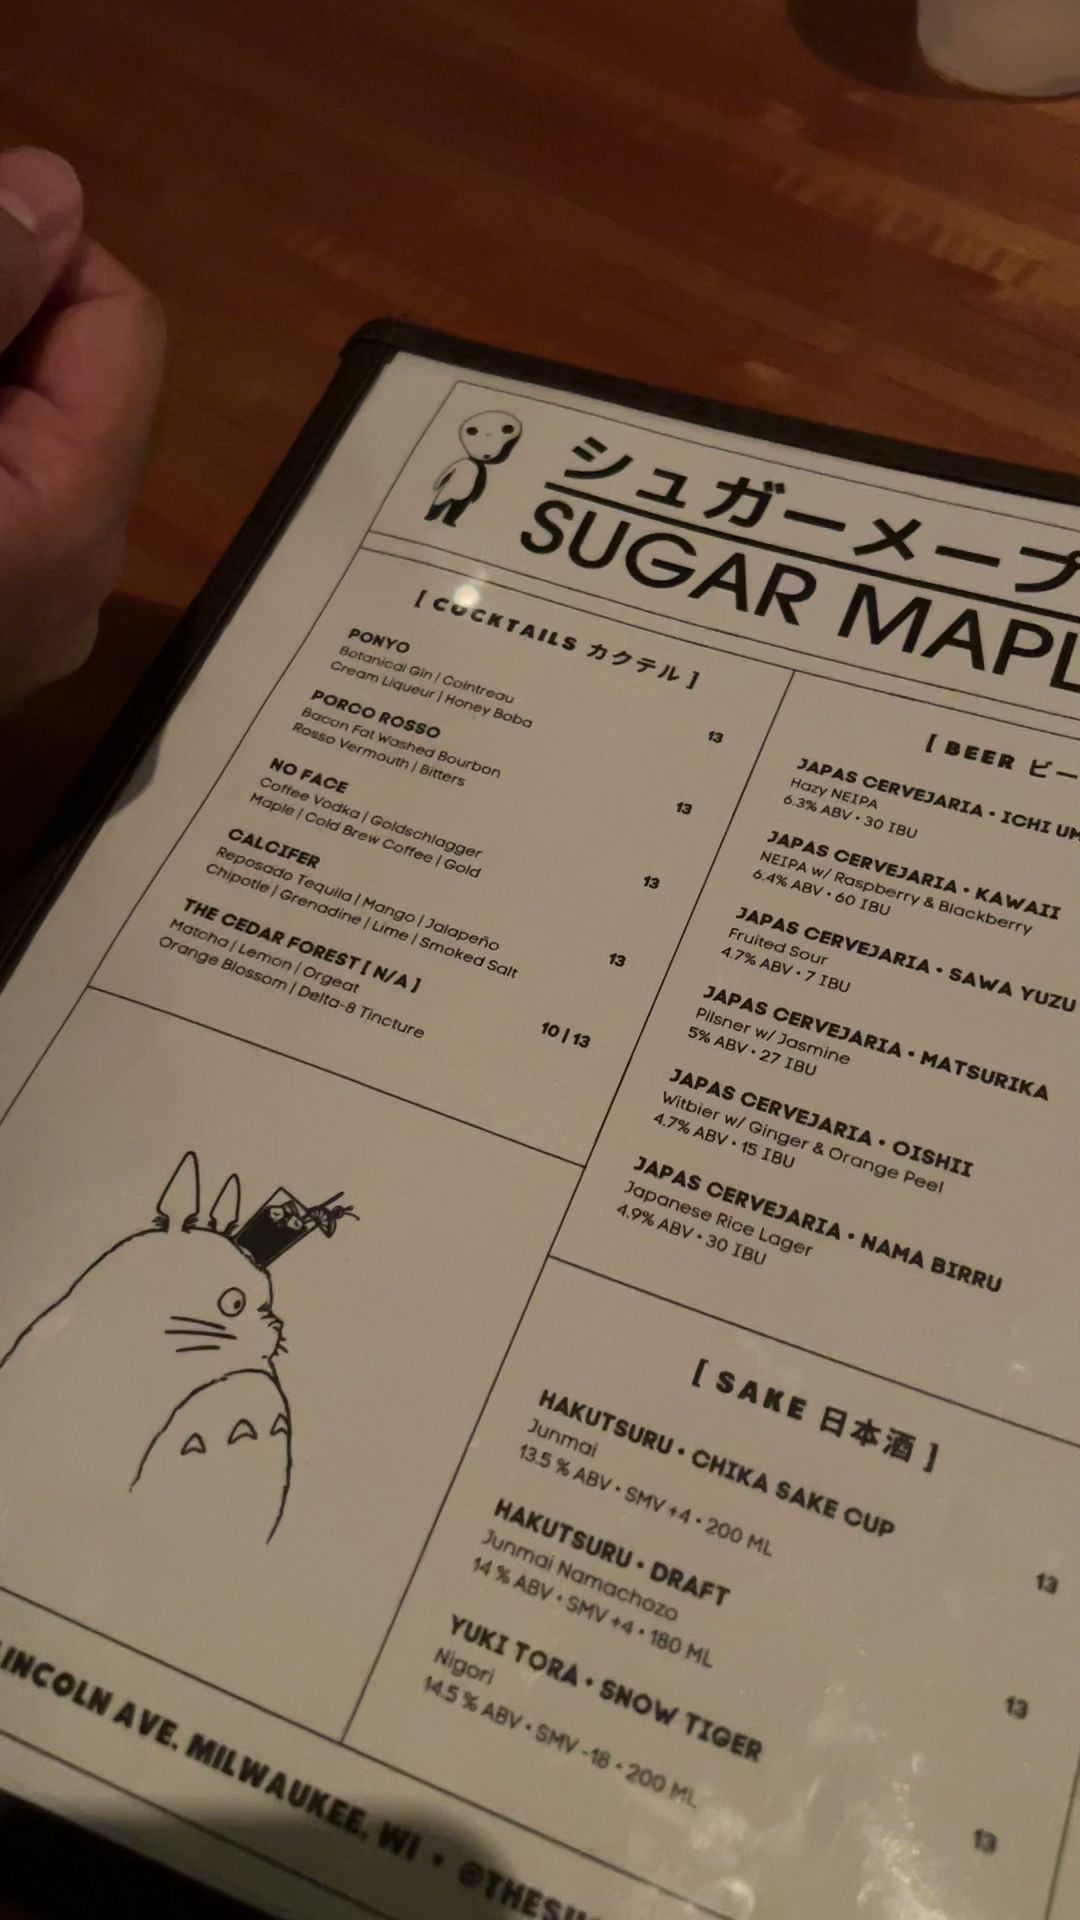 シュガーメープ
SUGAR MAPL
[ COCKTAILS カクテル ]
PONYO
Botanical Gin | Cointreau
Cream Liqueur | Honey Boba
13
PORCO ROSSO
Bacon Fat Washed Bourbon
Rosso Vermouth | Bitters
13
NO FACE
Coffee Vodka | Goldschlagger
Maple | Cold Brew Coffee | Gold
13
CALCIFER
Reposado Tequila | Mango | Jalapeño
Chipotle | Grenadine | Lime | Smoked Salt
13
THE CEDAR FOREST [ N/A ]
Matcha | Lemon | Orgeat
Orange Blossom | Delta-8 Tincture
10 | 13
[ BEER ビー
JAPAS CERVEJARIA • ICHI UM
Hazy NEIPA
6.3% ABV • 30 IBU
JAPAS CERVEJARIA • KAWAII
NEIPA w/ Raspberry & Blackberry
6.4% ABV • 60 IBU
JAPAS CERVEJARIA • SAWA YUZU
Fruited Sour
4.7% ABV • 7 IBU
JAPAS CERVEJARIA • MATSURIKA
Pilsner w/ Jasmine
5% ABV • 27 IBU
JAPAS CERVEJARIA • OISHII
Witbier w/ Ginger & Orange Peel
4.7% ABV • 15 IBU
JAPAS CERVEJARIA • NAMA BIRRU
Japanese Rice Lager
4.9% ABV • 30 IBU
[ SAKE 日本酒 ]
HAKUTSURU • CHIKA SAKE CUP
Junmai
13.5 % ABV • SMV +4 • 200 ML
13
HAKUTSURU • DRAFT
Junmai Namachozo
14 % ABV • SMV +4 • 180 ML
13
YUKI TORA • SNOW TIGER
Nigori
14.5 % ABV • SMV -18 • 200 ML
13
INCOLN AVE. MILWAUKEE, WI • @THESU